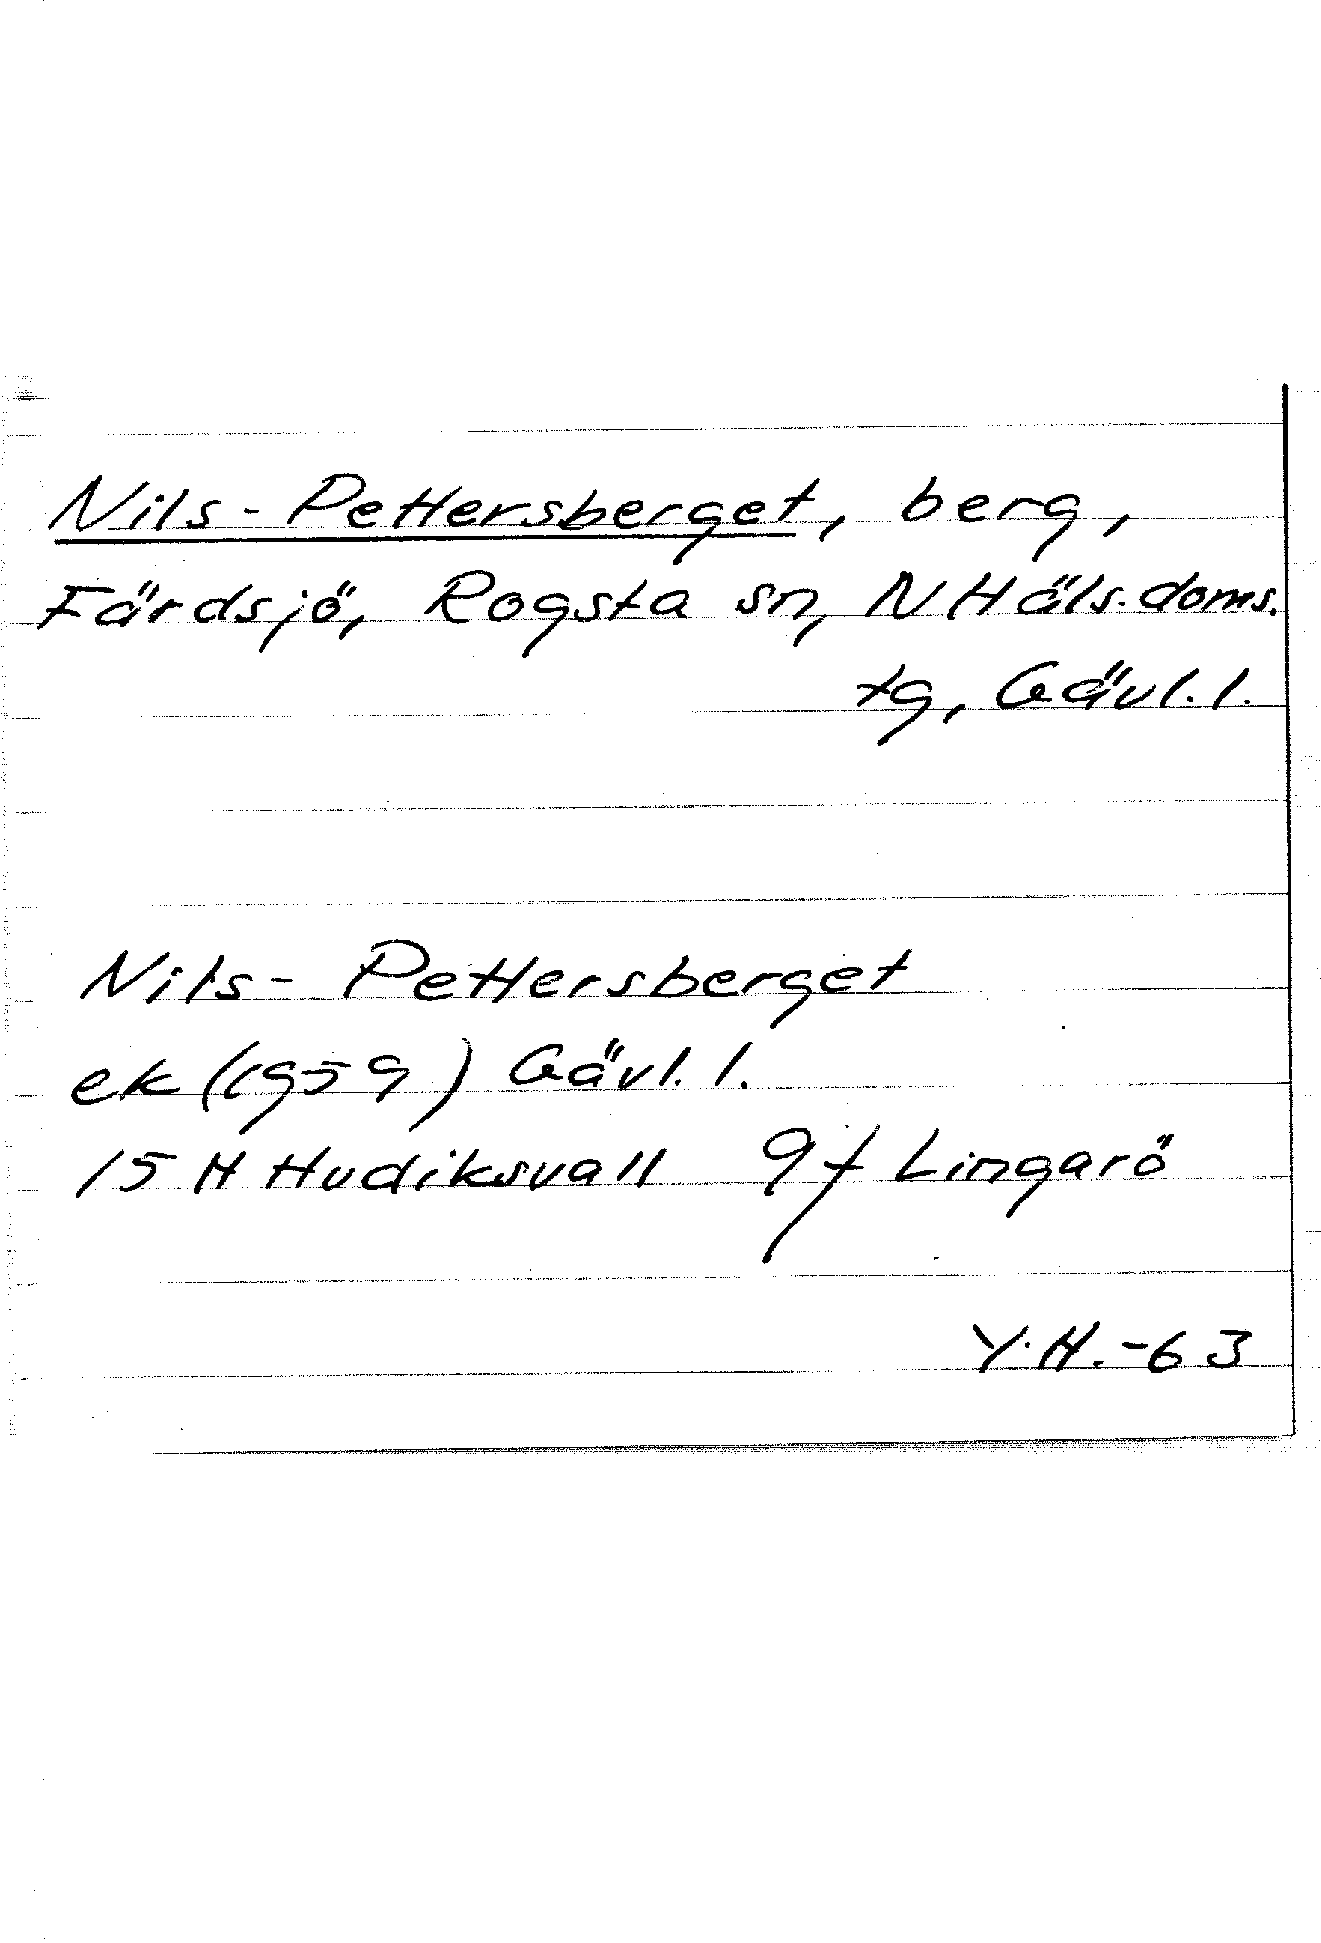 Nils-Pettersberget, berg,
Färdsjö, Rogsta sn, N Häls. doms.
tg, Gävl. l.
Nils-Pettersberget
ek (1959) Gävl. l.
15 H Hudiksvall 9f Lingarö
Y.H.-63